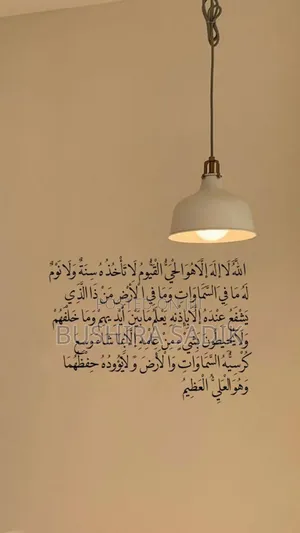 اللَّهُ لَا إِلَهَ إِلَّا هُوَ الْحَيُّ الْقَيُّومُ لَا تَأْخُذُهُ سِنَةٌ وَلَا نَوْمٌ
لَهُ مَا فِي السَّمَاوَاتِ وَمَا فِي الْأَرْضِ مَنْ ذَا الَّذِي
يَشْفَعُ عِنْدَهُ إِلَّا بِإِذْنِهِ يَعْلَمُ مَا بَيْنَ أَيْدِيهِمْ وَمَا خَلْفَهُمْ
وَلَا يُحِيطُونَ بِشَيْءٍ مِنْ عِلْمِهِ إِلَّا بِمَا شَاءَ وَسِعَ
كُرْسِيُّهُ السَّمَاوَاتِ وَالْأَرْضَ وَلَا يَؤُودُهُ حِفْظُهُمَا
وَهُوَ الْعَلِيُّ الْعَظِيمُ
BUSHIRA SADIK